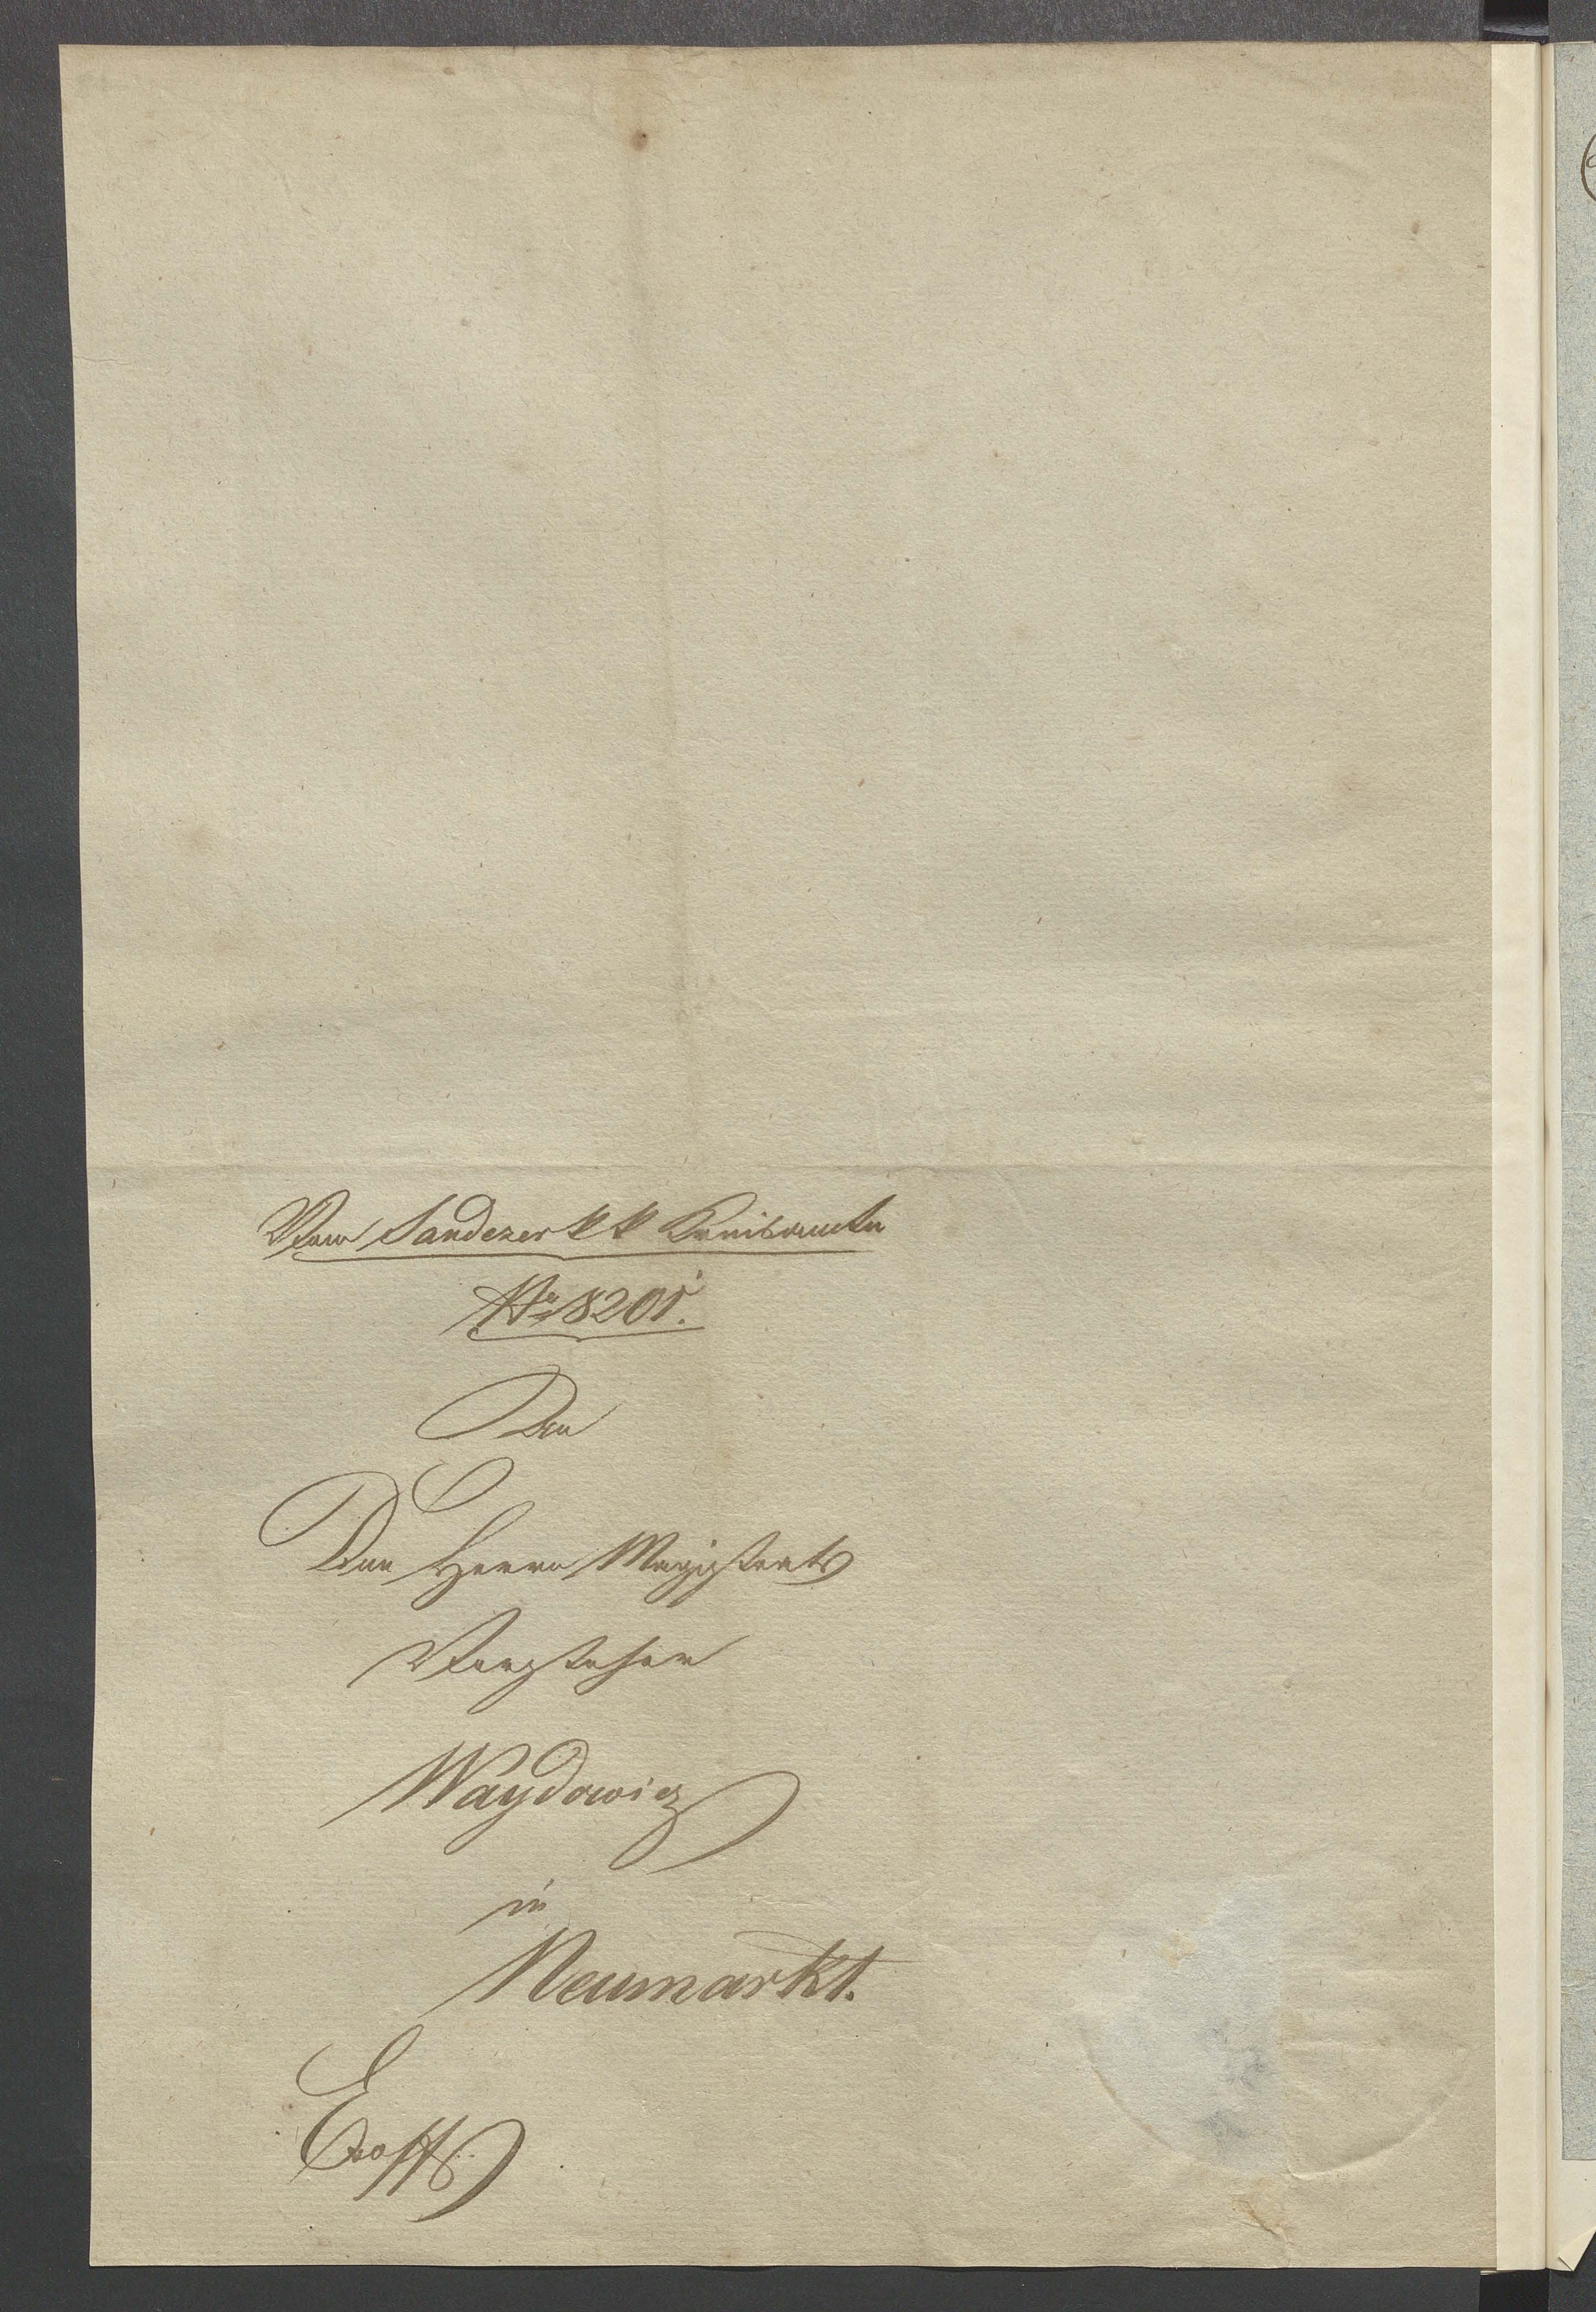 Vom Sandezer k k Kreisamte
No 8201.
An
Den Herrn Magistrats
Vorsteher
Waydowicz
in
Neumarkt.
Exoffo